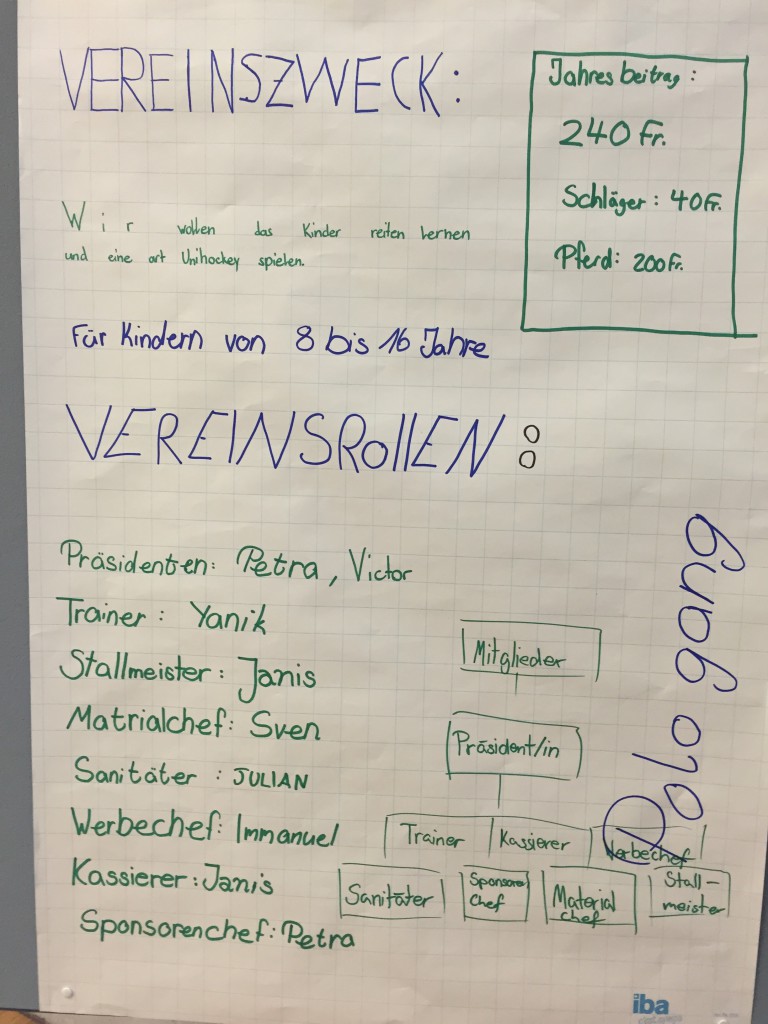 VEREINSZWECK:
Jahresbeitrag:
240 Fr.
Schläger: 40 Fr.
Pferd: 200 Fr.
Wir wollen das Kinder reiten lernen
und eine art Unihockey spielen.
Für Kindern von 8 bis 16 Jahre
VEREINSRollEN:
Präsidenten: Petra, Victor
Trainer: Yanik
Stallmeister: Janis
Matrialchef: Sven
Sanitäter: JULIAN
Werbechef: Immanuel
Kassierer: Janis
Sponsorenchef: Petra
Mitglieder
Präsident/in
Trainer Kassierer Werbechef
Sanitäter
Sponsore
Chef
Material
chef
Stall-
meister
Polo gang
iba